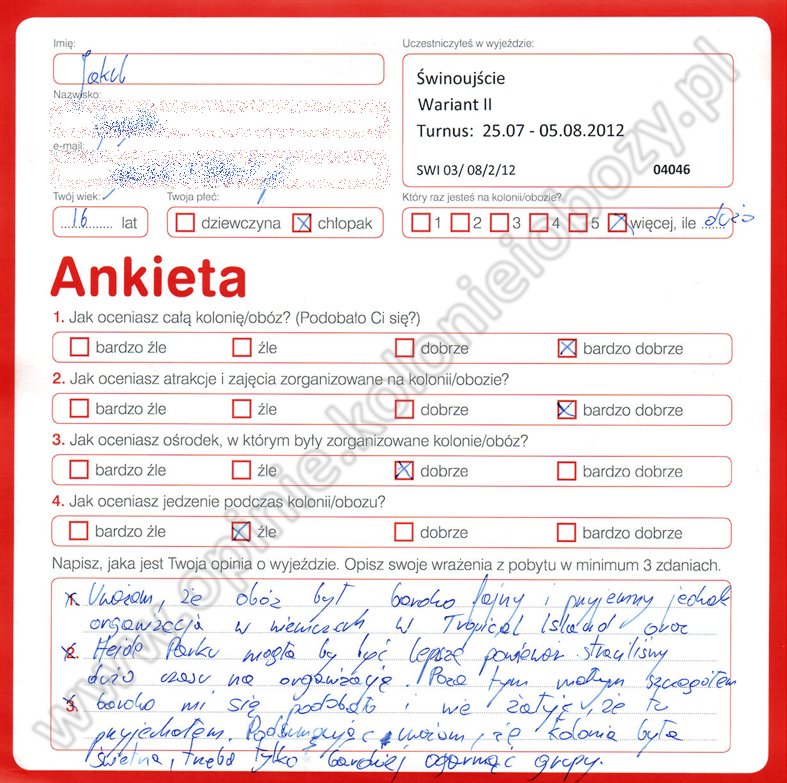 Imię:
Jakub
Nazwisko:
e-mail:
Twój wiek:
16 lat
Twoja płeć:
dziewczyna chłopak
Uczestniczyłeś w wyjeździe:
Świnoujście
Wariant II
Turnus: 25.07 - 05.08.2012
SWI 03/ 08/2/12 04046
Który raz jesteś na kolonii/obozie?
1 2 3 4 5 więcej, ile dużo
Ankieta
1. Jak oceniasz całą kolonię/obóz? (Podobało Ci się?)
bardzo źle źle dobrze bardzo dobrze
2. Jak oceniasz atrakcje i zajęcia zorganizowane na kolonii/obozie?
bardzo źle źle dobrze bardzo dobrze
3. Jak oceniasz ośrodek, w którym były zorganizowane kolonie/obóz?
bardzo źle źle dobrze bardzo dobrze
4. Jak oceniasz jedzenie podczas kolonii/obozu?
bardzo źle źle dobrze bardzo dobrze
Napisz, jaka jest Twoja opinia o wyjeździe. Opisz swoje wrażenia z pobytu w minimum 3 zdaniach.
1. Uważam, że obóz był bardzo fajny i przyjemny jednak
organizacja w niemczech w Tropical Island oraz
2. Heide Parku mogła by być lepsza ponieważ straciliśmy
dużo czasu na organizację. Poza tym małym szczegółem
3. bardzo mi się podobało i nie żałuję, że tu
przyjechałem. Podsumowując uważam, że kolonia była
świetna, trzeba tylko bardziej ogarnąć grupy.
www.opinie.kolonieiobozy.pl